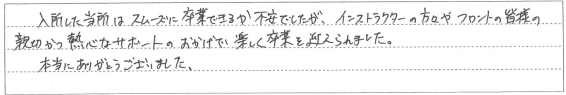 入所した当所はスムーズに卒業できるか不安でしたが、インストラクターの方々やフロントの皆様の
親切かつ熱心なサポートのおかげで楽しく卒業を迎えられました。
本当にありがとうございました。